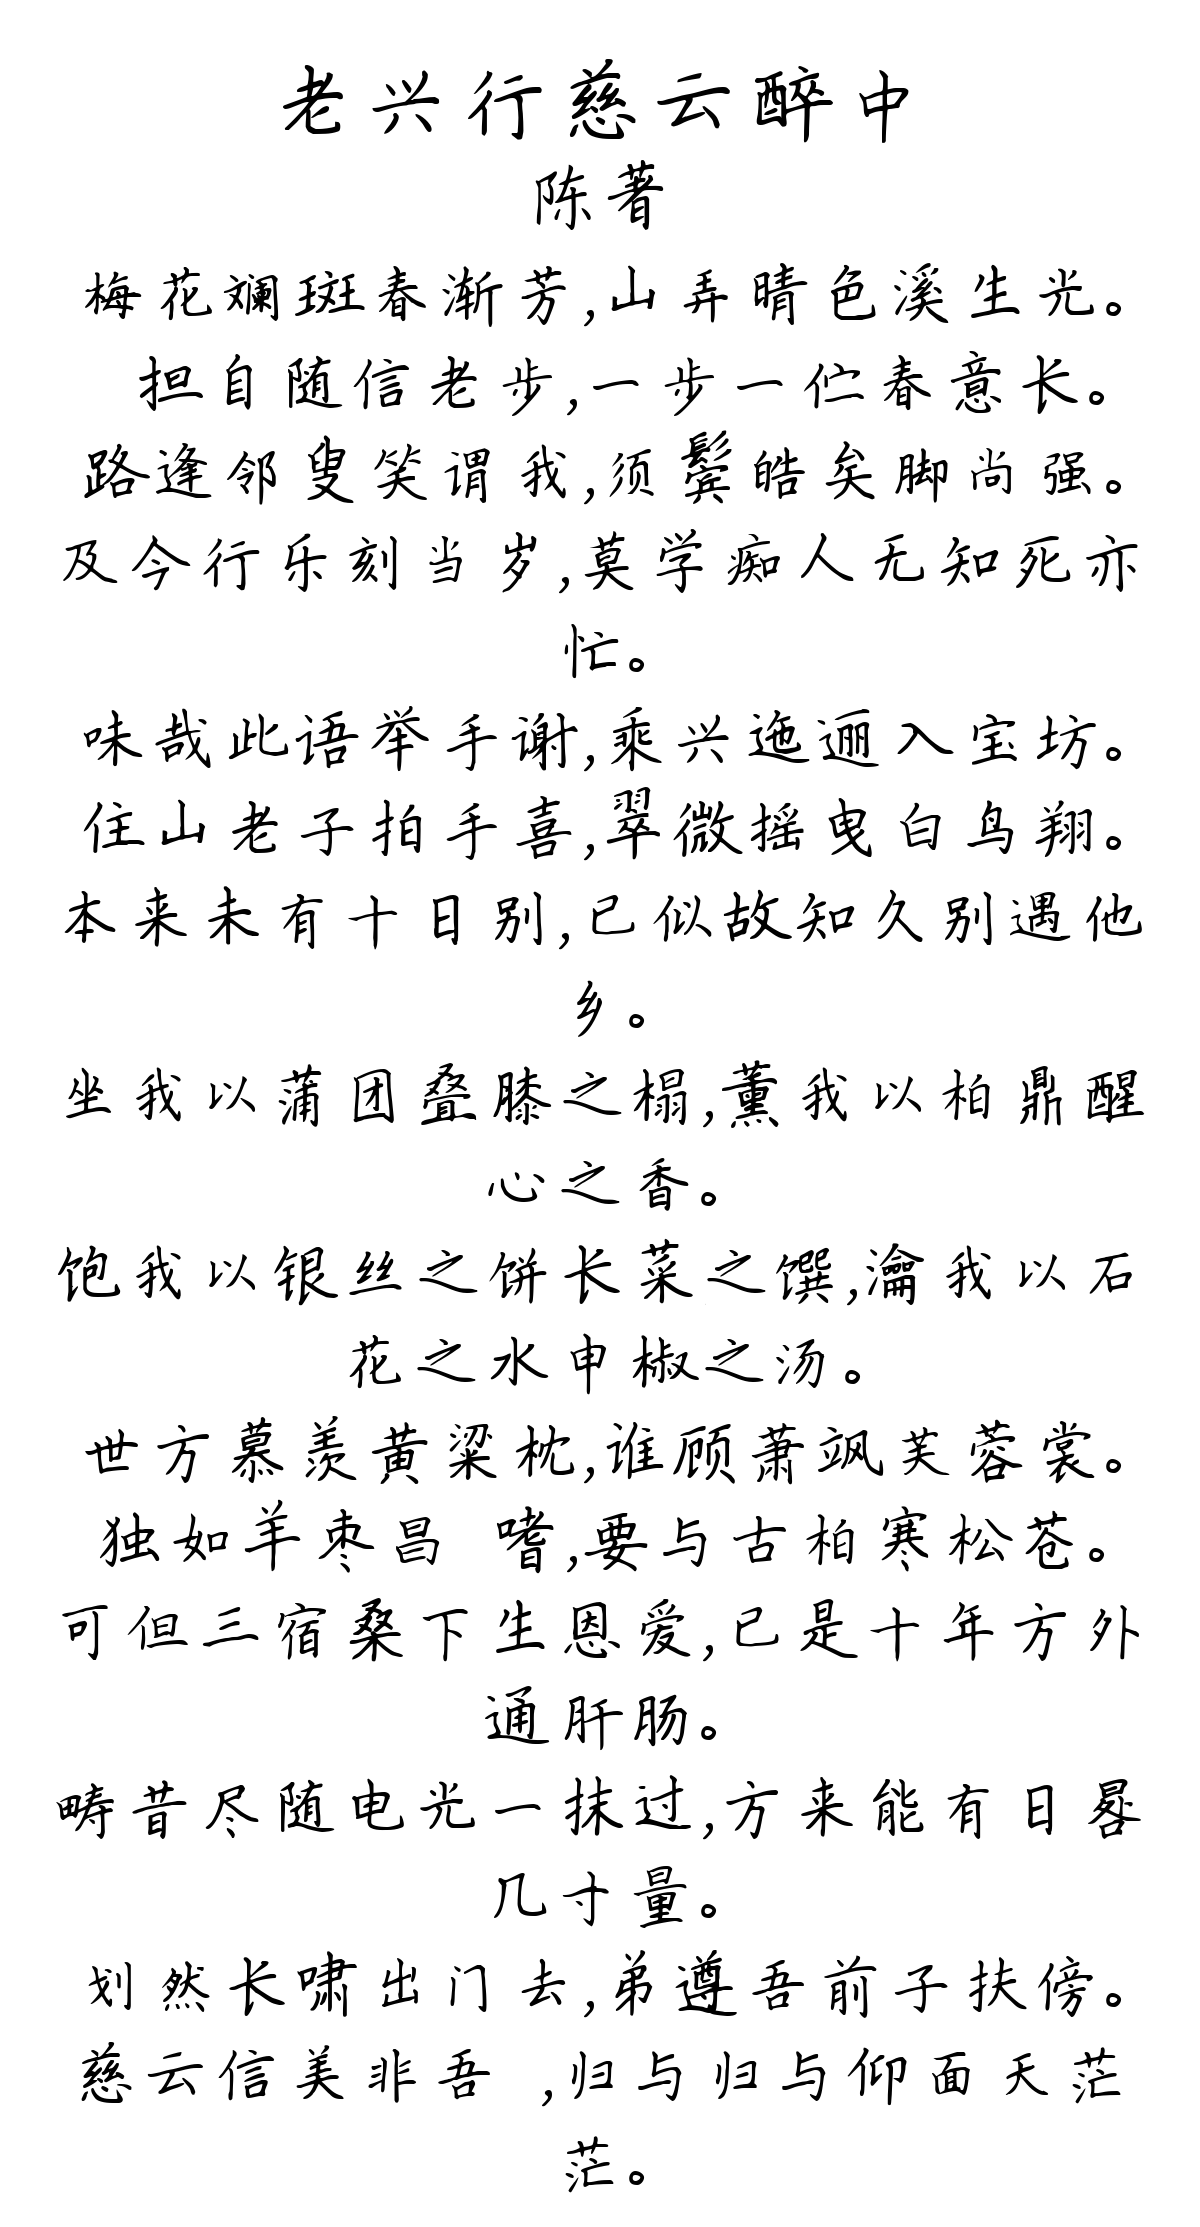 老兴行慈云醉中
陈著
梅花斓斑春渐芳,山弄晴色溪生光。
担自随信老步,一步一伫春意长。
路逢邻叟笑谓我,须鬓皓矣脚尚强。
及今行乐刻当岁,莫学痴人无知死亦
忙。
味哉此语举手谢,乘兴迤逦入宝坊。
住山老子拍手喜,翠微摇曳白鸟翔。
本来未有十日别,已似故知久别遇他
乡。
坐我以蒲团叠膝之榻,薰我以柏鼎醒
心之香。
饱我以银丝之饼长菜之馔,瀹我以石
花之水申椒之汤。
世方慕羡黄粱枕,谁顾萧飒芙蓉裳。
独如羊枣昌 嗜,要与古柏寒松苍。
可但三宿桑下生恩爱,已是十年方外
通肝肠。
畴昔尽随电光一抹过,方来能有日晷
几寸量。
划然长啸出门去,弟遵吾前子扶傍。
慈云信美非吾 ,归与归与仰面天茫
茫。